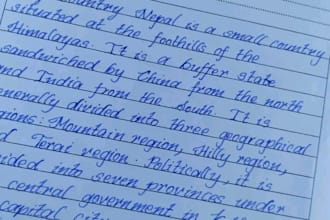 country Nepal is a small country
situated at the foothills of the
Himalayas. It is a buffer state
sandwiched by China from the north
and India from the south. It is
generally divided into three geographical
regions: Mountain region, Hilly region,
d Terai region. Politically, it is
vided into seven provinces under
central government in
capital